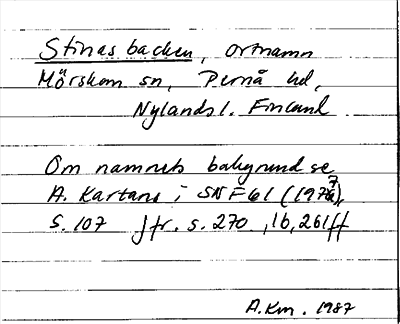 Stinas backen, ortnamn
Mörskom sn, Pernå hd,
Nylands l. Finland
Om namnets bakgrund se
A. Kartano i SNF 61 (1977),
S. 107 Jfr. s. 270, 16, 261 ff
A.Km. 1987